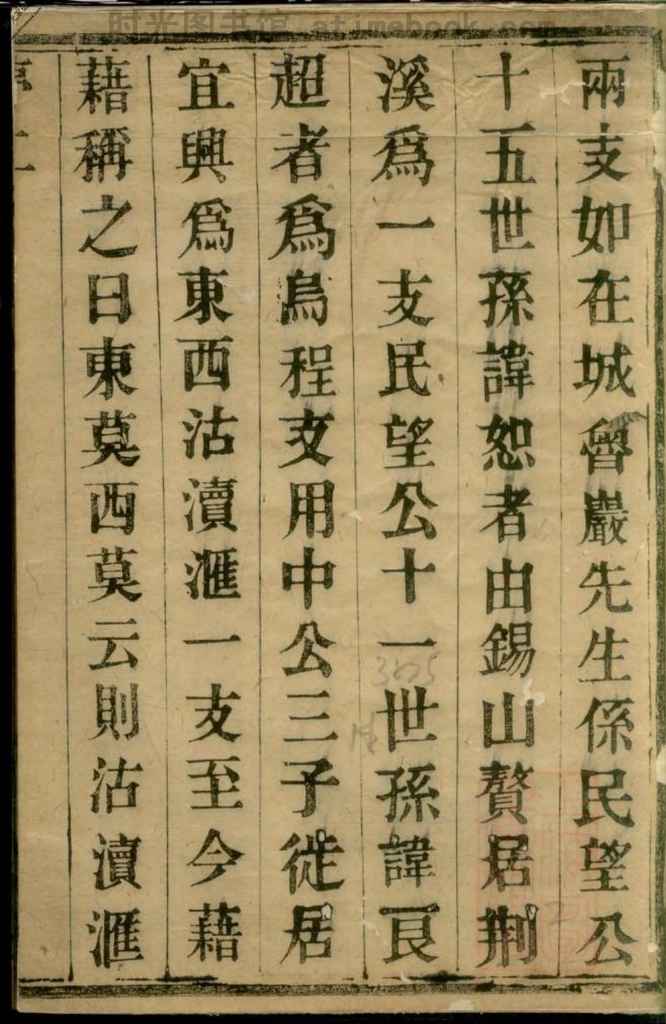 时光图书馆 atimebook.com
兩支如在城魯巖先生係民望公
十五世孫諱恕者由錫山贅居荆
溪爲一支民望公十一世孫諱艮
超者爲烏程支用中公三子徙居
宜興爲東西沽瀆滙一支至今藉
藉稱之曰東莫西莫云則沽瀆滙
3625